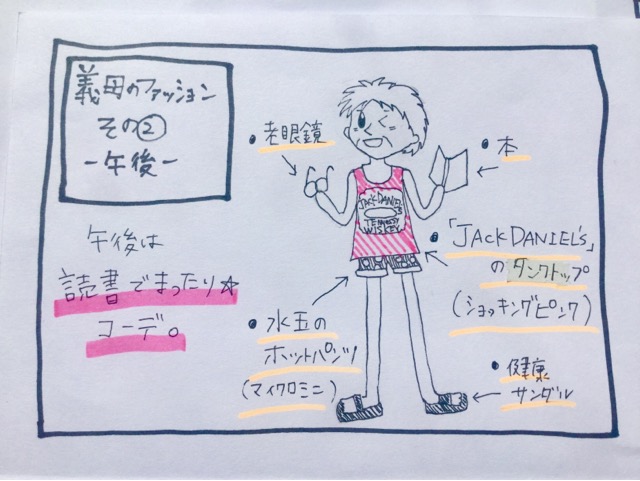 義母のファッション
その②
-午後-
午後は
読書でまったり☆
コーデ。
・老眼鏡
・本
JACK DANIEL'S
TENNESSY
WISKEY
・「JACK DANIEL'S」
のタンクトップ
(ショッキングピンク)
・水玉の
ホットパンツ
(マイクロミニ)
・健康
サンダル